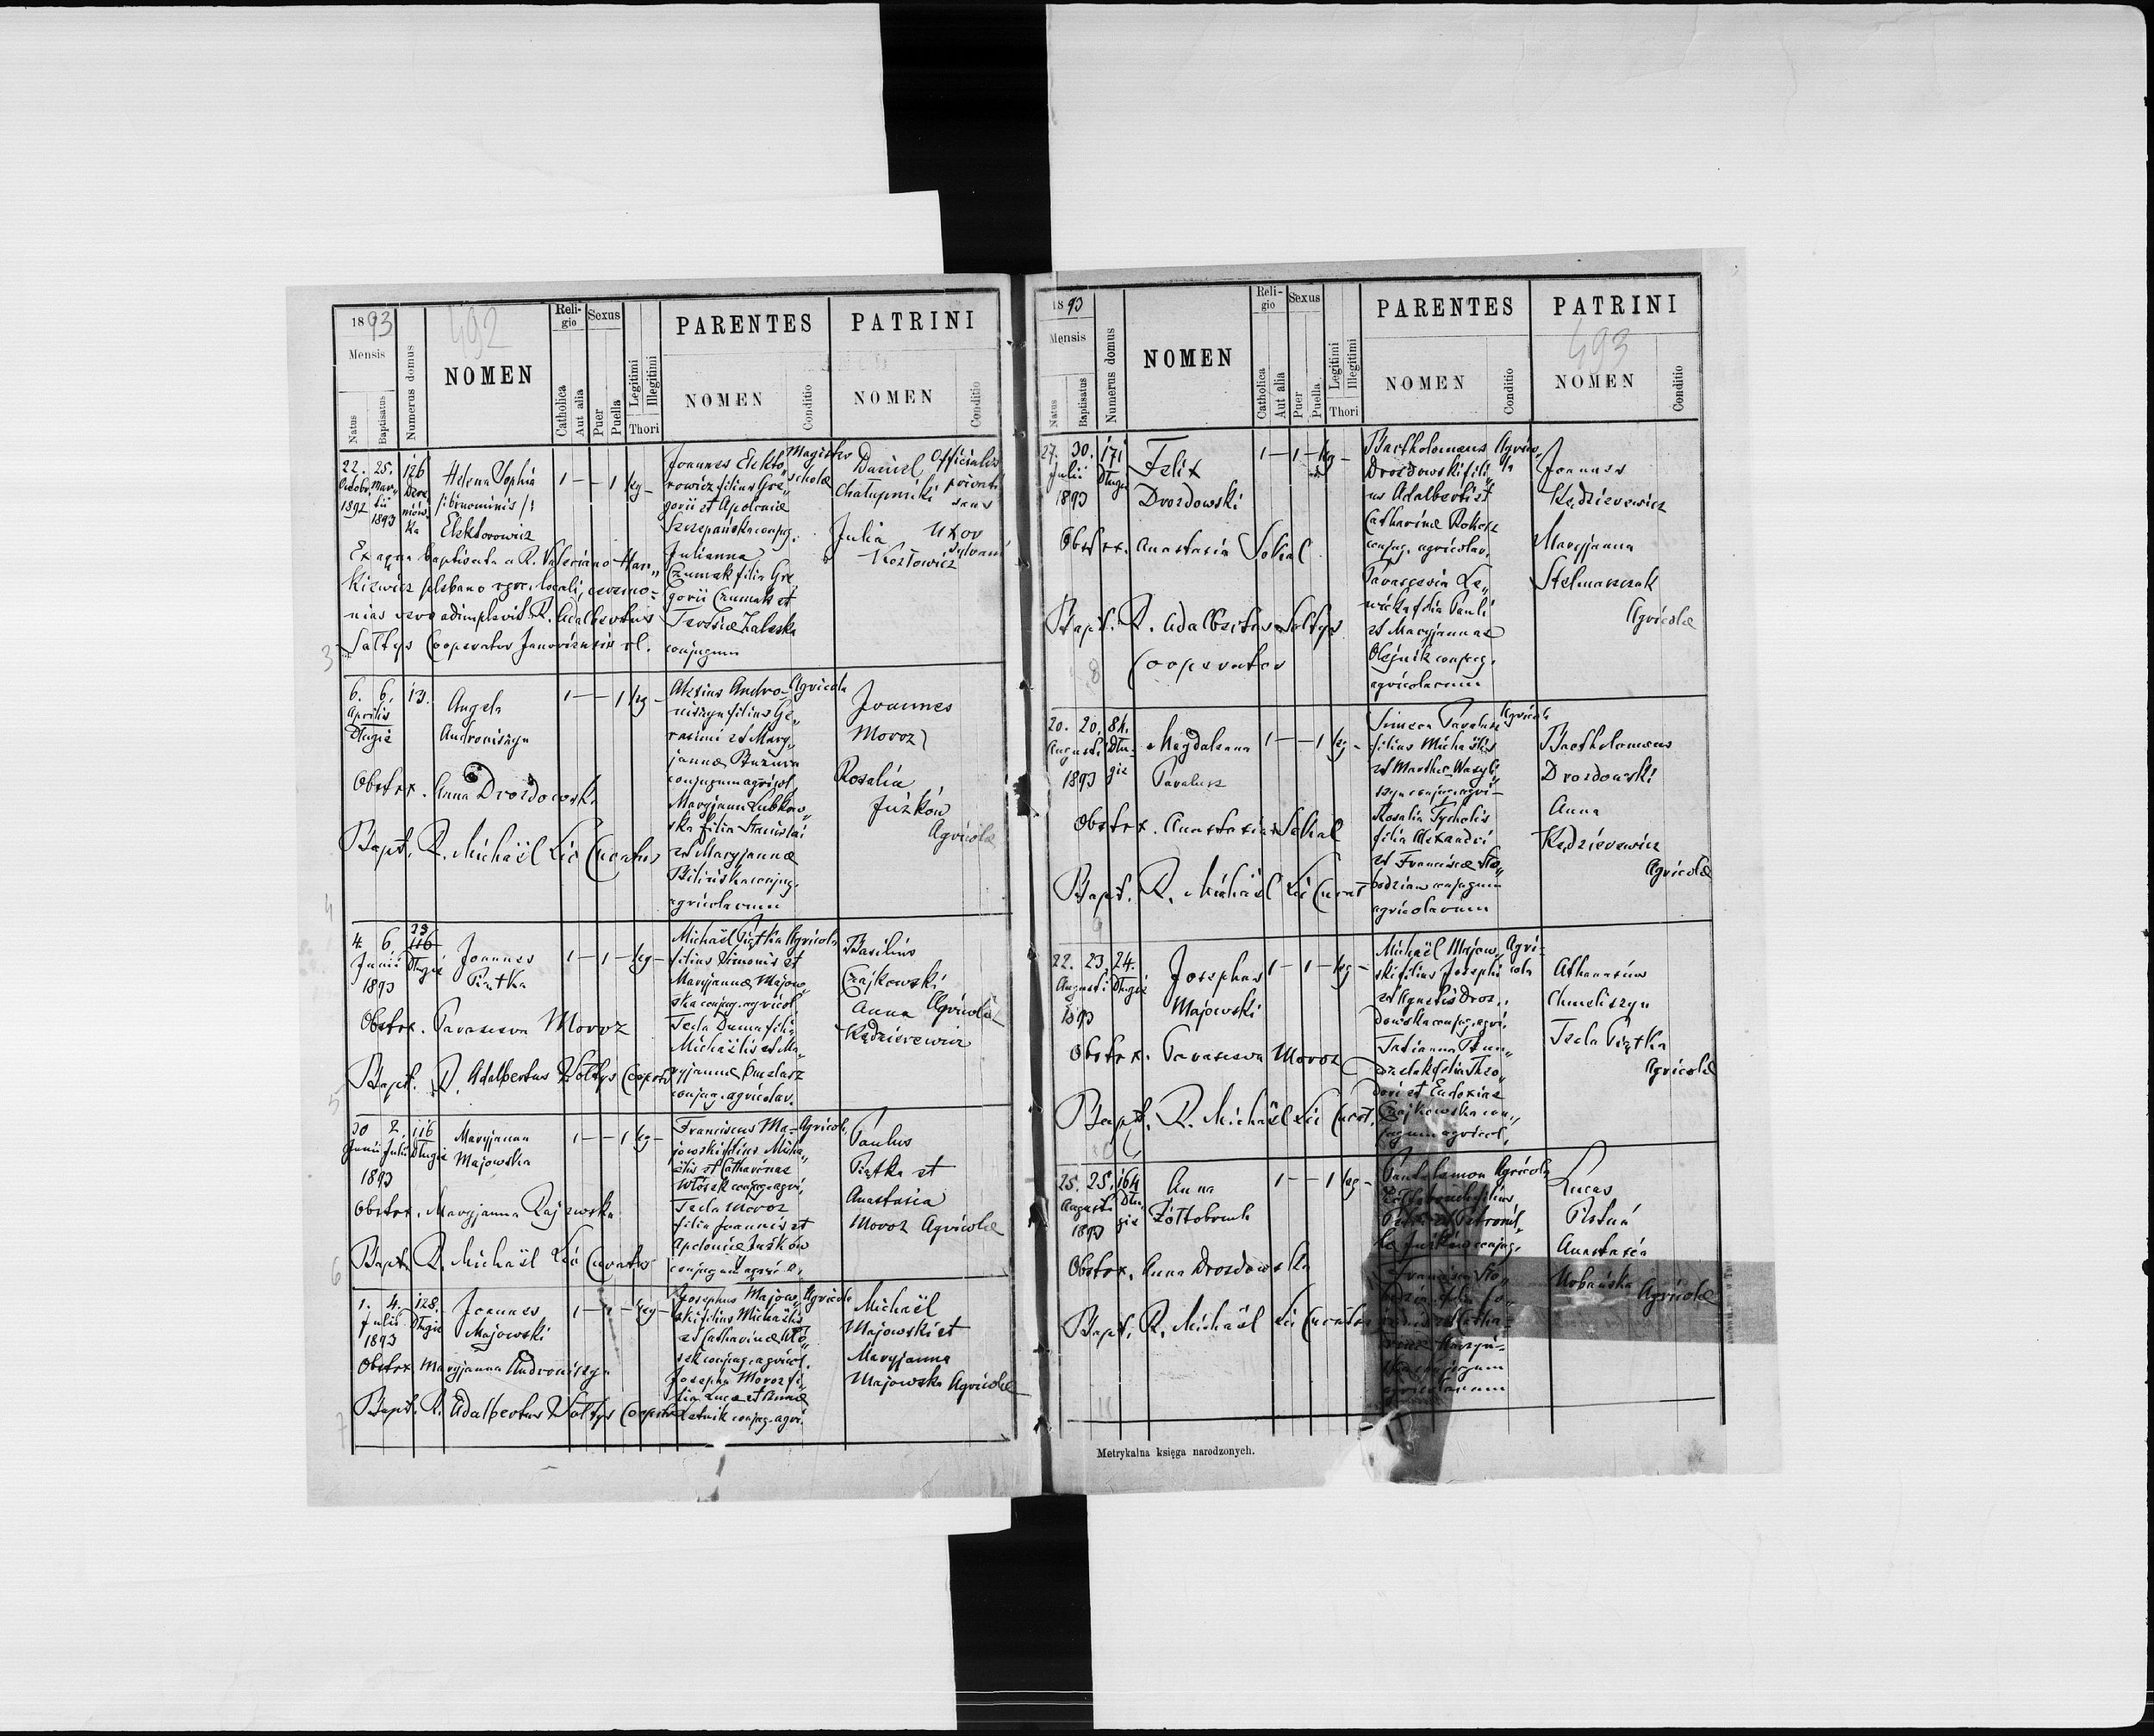 1893
Mensis
Natus
Baptisatus
Numerus domus
492
NOMEN
Religio
Catholica
Aut alia
Sexus
Puer
Puella
Legitimi
Illegitimi
Thori
PARENTES
NOMEN
Conditio
PATRINI
NOMEN
Conditio
22. 25. 126
Octobr. Mar„
tii
1892 1893
Helena Sophia
/:binominis/:
Elektorowicz
1 — — 1 leg —
Joannes Elekto„
rowicz filius Gre„
gorii et Apoloniæ
Szczepańska conjug.
Julianna
Czumak filia Gre„
gorii Czumak et
Teresiæ Zaleska
conjugum
Magister
scholæ
Daniel
Chałupnicki
Officialis
privat
Julia
Kozłowicz
Uxor
Ex aqua baptisata a R. Valeriano Han„
kiewicz plebano rgr. locali, ceremo=
nias vero adimplevit R. Adalbertus
Sałtys Cooperator Janoviensis rl.
3
6. 6. 13.
Aprilis
Długie
Angela
Androniszyn
1 — — 1 leg —
Alexius Andro-
niszyn filius Ge„
rasimi et Mary„
jannæ Buzura
conjugum agricol.
Maryjanna Lubkow„
ska filia Stanislai
et Maryjannæ
Bilińska conjug.
agricolarum
Agricola
Joannes
Moroz
Rosalia
Juzków
Agricolæ
Obstetr. Anna Drozdowska
Bapt. R. Michaël Lic Curatus
4
4. 6. 23
116
Junii Długie
1893
Joannes
Piątka
1 — 1 — leg —
Michaël Piątka
filius Simonis et
Maryjannæ Majow„
ska conjug. agricol.
Tecla Duma filia
Michaëlis et Ma„
ryjannæ
conjug. agricolar.
Agricola
Basilius
Czajkowski
Anna Agricolæ
Kędzierewicz
Obstetr. Parascewa Moroz
Bapt. R. Adalbertus Sołtys Cooper
5
20 2. 116
Junii Julii Długie
1893
Maryjanna
Majowska
1 — — 1 leg —
Franciscus Ma-
jowski filius Micha„
ëlis et Catharinæ
Włószek conjug. agri„
Tecla Moroz
filia Joannis et
Apoloniæ Juzków
conjugum agricol.
Agricola
Paulus
Piątka et
Anastasia
Moroz Agricolæ
Obstetr. Maryjanna Rajzewska
Bapt. R. Michaël Lic Curatus
6
1. 4. 128.
Julii Długie
1893
Joannes
Majowski
1 — 1 — leg —
Josephus Majow„
ski filius Michaëlis
et Catharinæ Wło„
szek conjug. agricol.
Josepha Moroz fi„
lia Lucæ et Annæ
Letnik conjug. agri.
Agricola
Michaël
Majowski et
Maryjanna
Majowska Agricolæ
Obstetr. Maryjanna Androniszyn
Bapt. R. Adalbertus Sołtys Cooper
7
1893
Mensis
Natus
Baptisatus
Numerus domus
NOMEN
Religio
Catholica
Aut alia
Sexus
Puer
Puella
Legitimi
Illegitimi
Thori
PARENTES
NOMEN
Conditio
PATRINI
493
NOMEN
Conditio
27. 30. 171
Julii Długie
1893
Felix
Drozdowski
1 — 1 — leg —
Bartholomeus
Drozdowski fili„
us Adalberti et
Catharinæ Rokosz
conjug. agricolar.
Parascevia Le„
wicka filia Pauli
et Maryjannæ
Olejnik conjug.
agricolarum
Agrico„
la
Joannes
Kędzierewicz
Maryjanna
Stelmaszczak
Agricolæ
Obstetr. Anastasia Sokal
Bapt. R. Adalbertus Sołtys
Cooperator
8
20. 20. 84.
Augusti Dłu-
1893 gie
Magdalena
Tavalusz
1 — — 1 leg —
Simeon Tavalusz
filius Michaëlis
et Marthæ Wasyli„
szyn conjug. agri—
Rosalia Tycholis
filia Alexandri
et Franciscæ Sło„
bodzian conjugum
agricolarum
Agricola
Bartholomeus
Drozdowski
Anna
Kędzierewicz
Agricolæ
Obstetr. Anastasia Sokal
Bapt. R. Michaël Lic Curat
9
22. 23. 24.
Augusti Długie
1893
Josephus
Majowski
1 — 1 — leg —
Michaël Majow„
ski filius Josephi
et Agnetis Droz„
dowska conjug. agri.
Tatianna
filia Theo„
dori et Eudoxiæ
Czajkowska con„
jugum agricol.
Agri-
cola
Athanasius
Chmeliszyn
Tecla Piątka
Agricolæ
Obstetr. Parascewa Moroz
Bapt. R. Michaël Lic Curat.
10
25. 25. 164
Augusti Dłu-
1893 gie
Anna
Żółtobruch
1 — — 1 leg —
Pantalemon
filius
Petri et Petronil„
læ Juzków conjug.
Francisca Sło„
conjugum
agricolarum
Agricola
Lucas
Anastasia
Urbańska Agricolæ
Obstetr. Anna Drozdowska
Bapt. R. Michaël Lic Curatus
11
Metrykalna księga narodzonych.